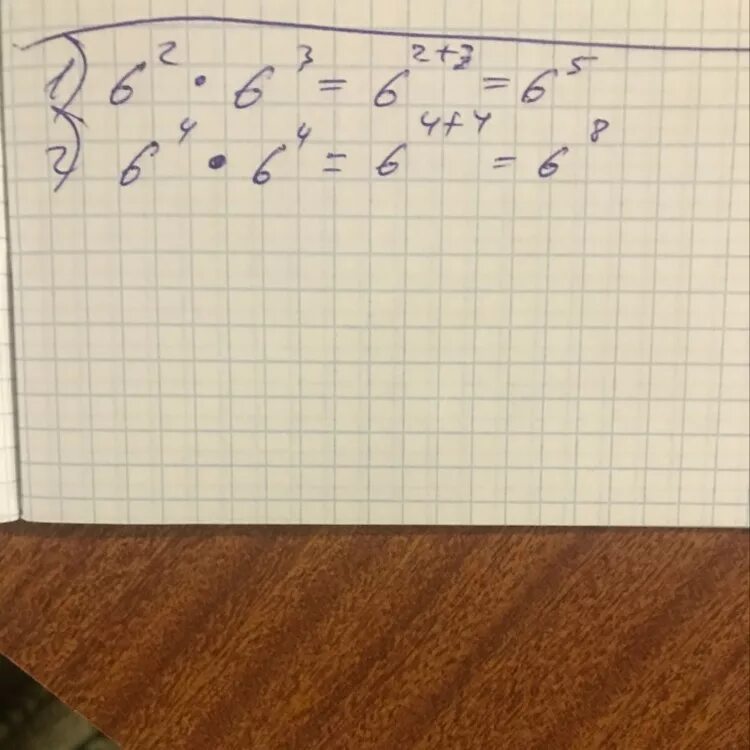 1) 6² · 6³ = 6²⁺³ = 6⁵
2) 6⁴ · 6⁴ = 6⁴⁺⁴ = 6⁸